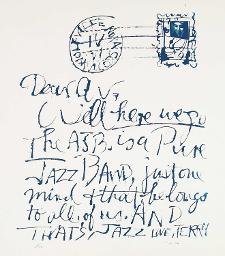 Dear A V,
Well here we go
The ASB. is a Pure
JAZZ BAND, just one
mind & that belongs
to all of us. AND
THATS JAZZ LOVE,